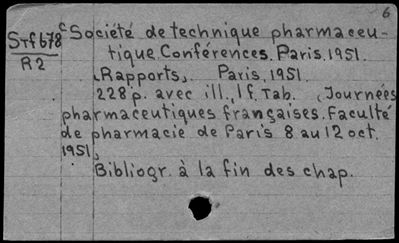 6
STf678
R2
Société de technique pharmaceu-
tique Conférences. Paris, 1951.
(Rapports). Paris, 1951.
228 p. avec ill., 1 f. Tab. (Journées
pharmaceutiques françaises. Faculté
de pharmacie de Paris 8 au 12 oct.
1951)
Bibliogr. à la fin des chap.